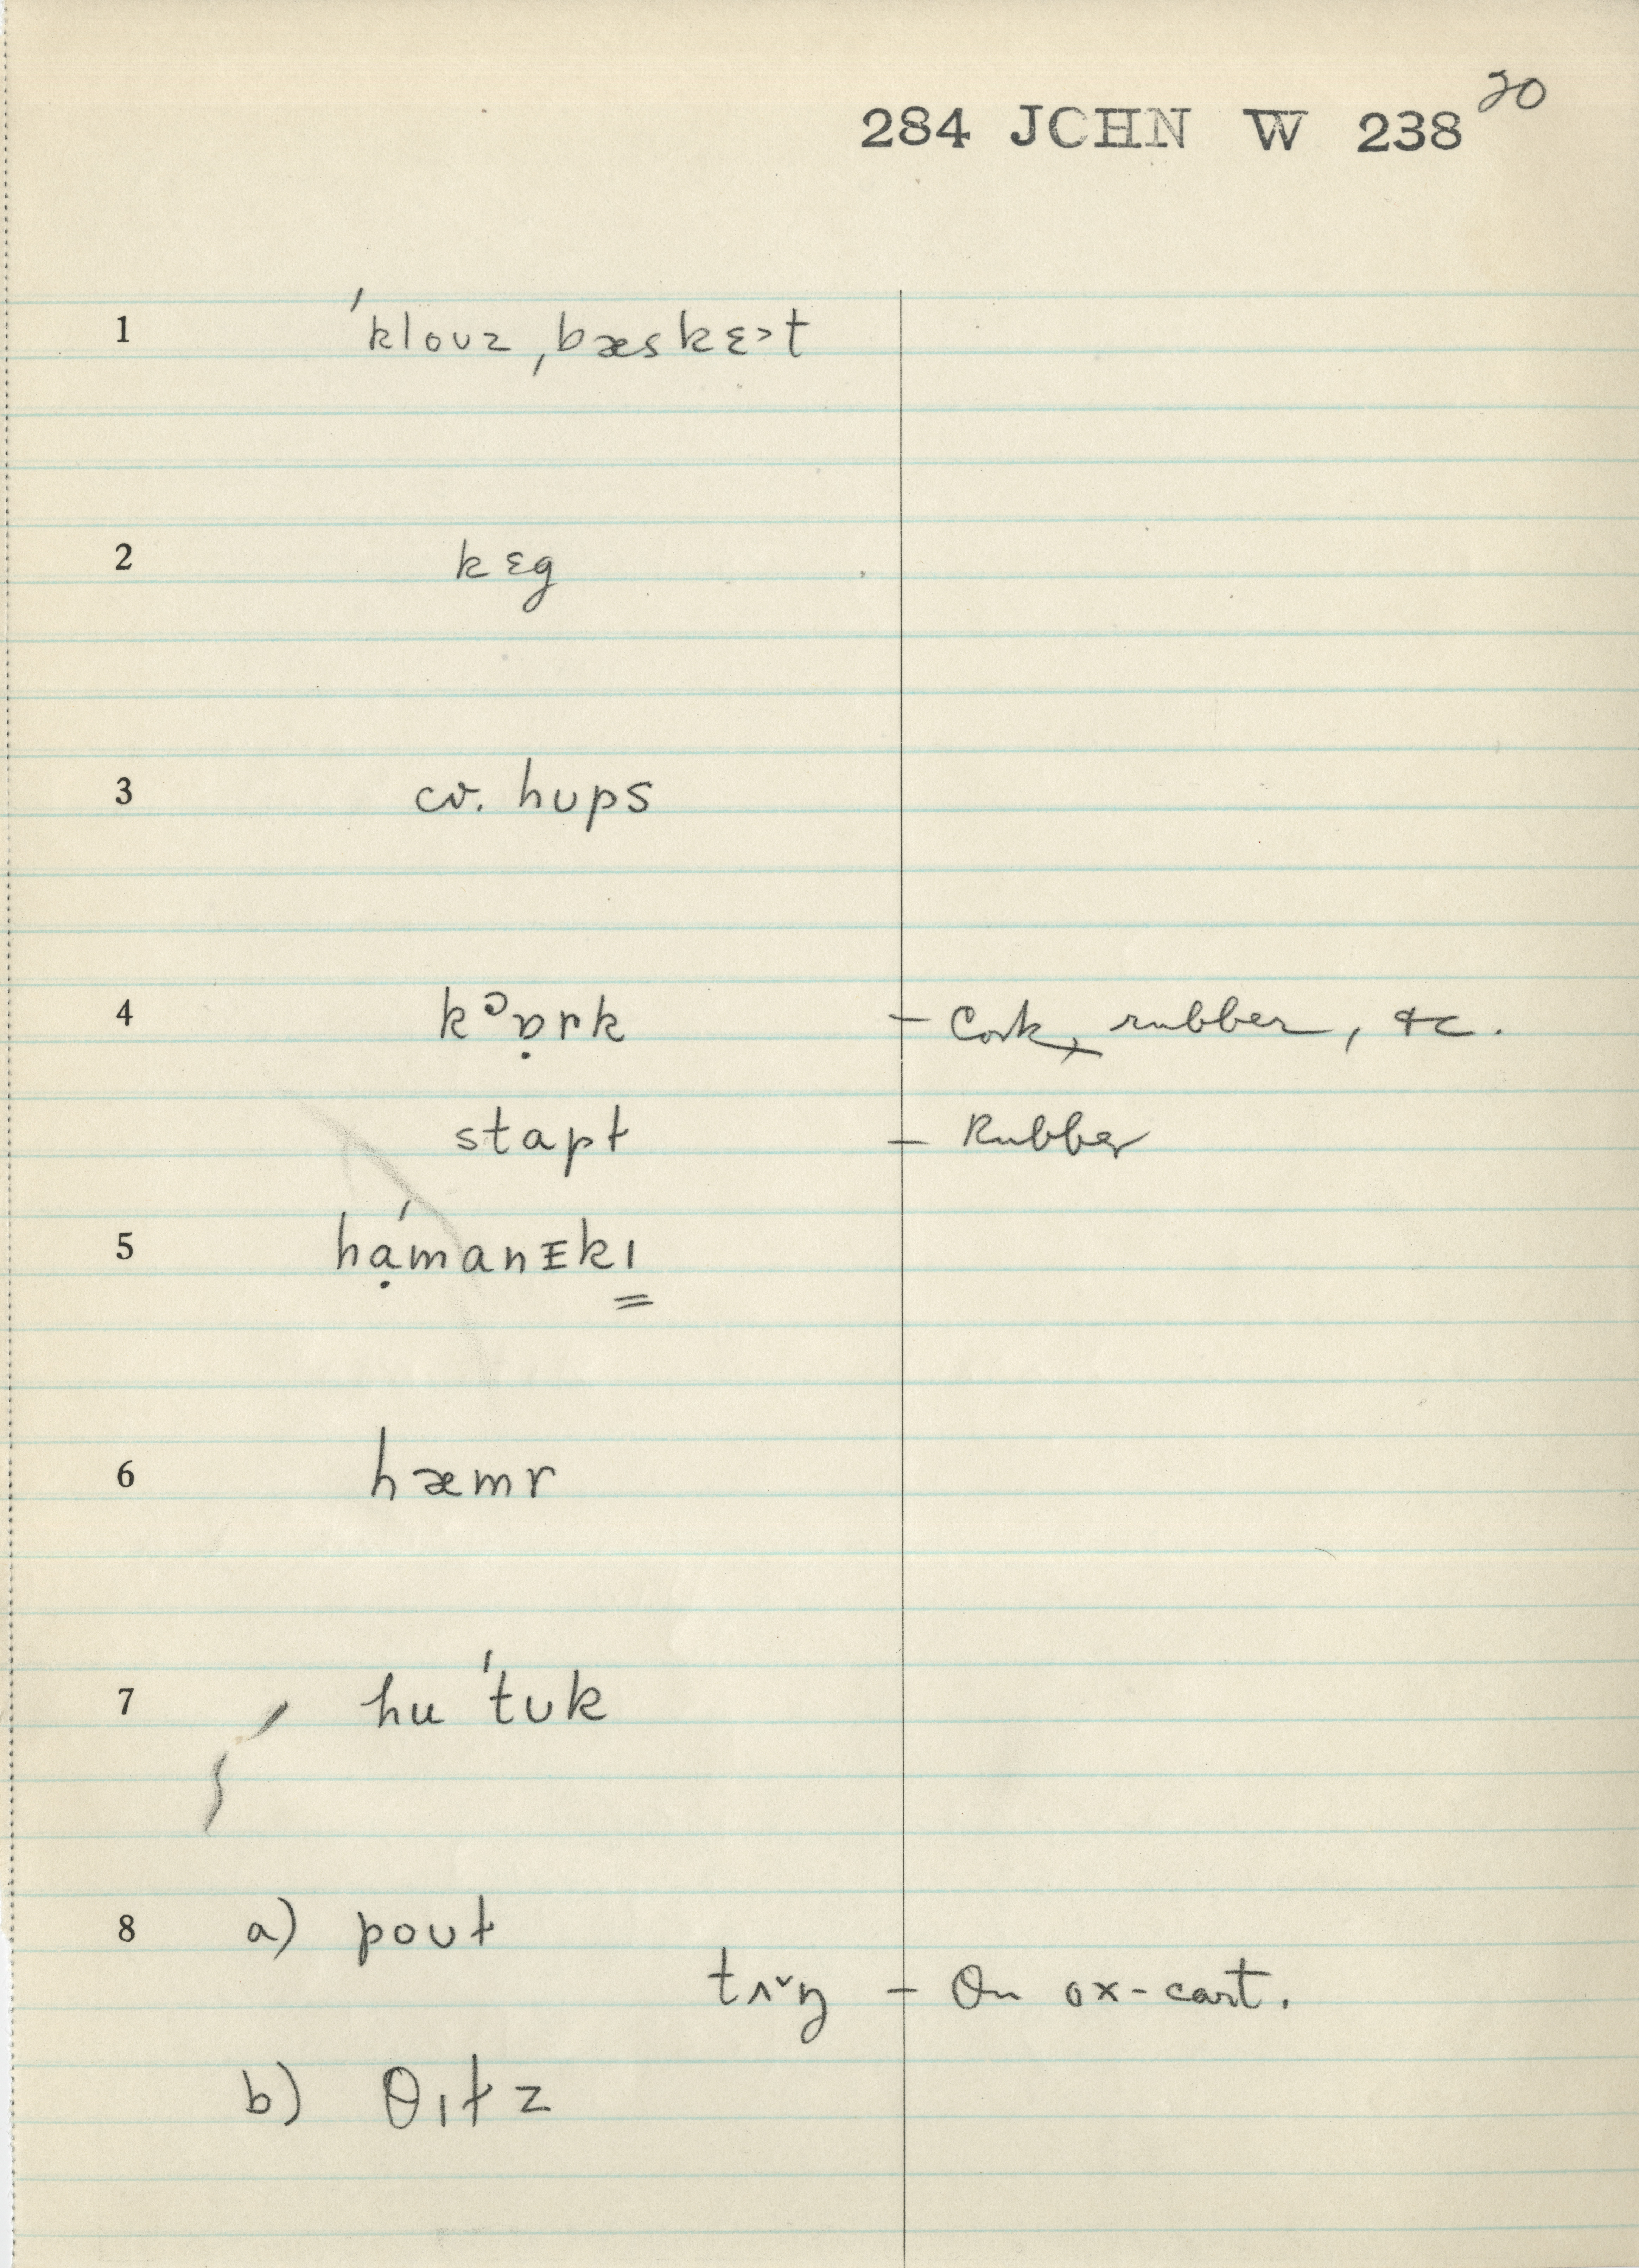 20
284 JOHN W 238
1 ˈklouz ˌbæskɛɜt
2 kɛg
3 cv. hups
4 kᵓɒ̣rk – Cork, rubber, &c.
stapɫ – Rubber
5 hạ́manɪkɪ
6 hæmr
7 hu ˈtʊk
8 a) poʊɫ
tʌˇŋ – On ox-cart.
b) θɪɫz